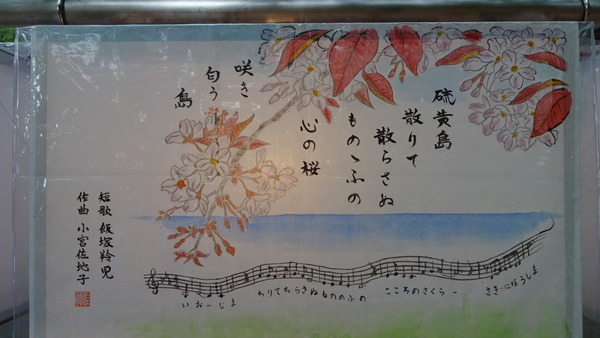 硫黄島
散りて
散らさぬ
ものゝふの
心の桜
咲き
匂う
島
短歌 飯塚羚児
作曲 小宮佐地子
いおーじま
ちりてちらさぬもののふの
こころのさくらー
さきーにおうしま